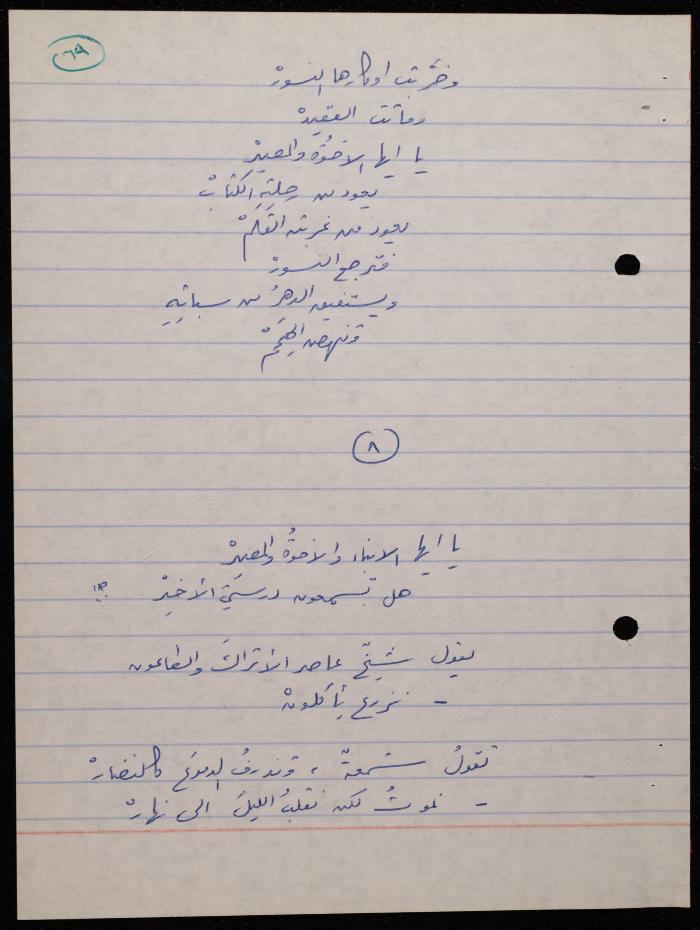 ٦٩
وخرّبت اوكارها النسورْ
وماتت العقيدْ
يا ايها الاخوّة والمصيرْ
يعود من رحلتِهِ الكتابْ
يعود من غربته القَلَمْ
فترجع النسورْ
ويستفيق الدهرُ من سباتِهِ
وتنهض الهِمَمْ
٨
يا ايها الابناء والاخوّة والمصيرْ
هل تسمعون درسيَ الأخيرْ
يقول شيخٌ عاصر الأتراكَ والطاعون
- نزرع يأكلونْ
تقولُ شمعةٌ ، وتذرفُ الدموعَ كالنضارْ
- نموتُ لكن نقلبُ الليلَ الى نهارْ